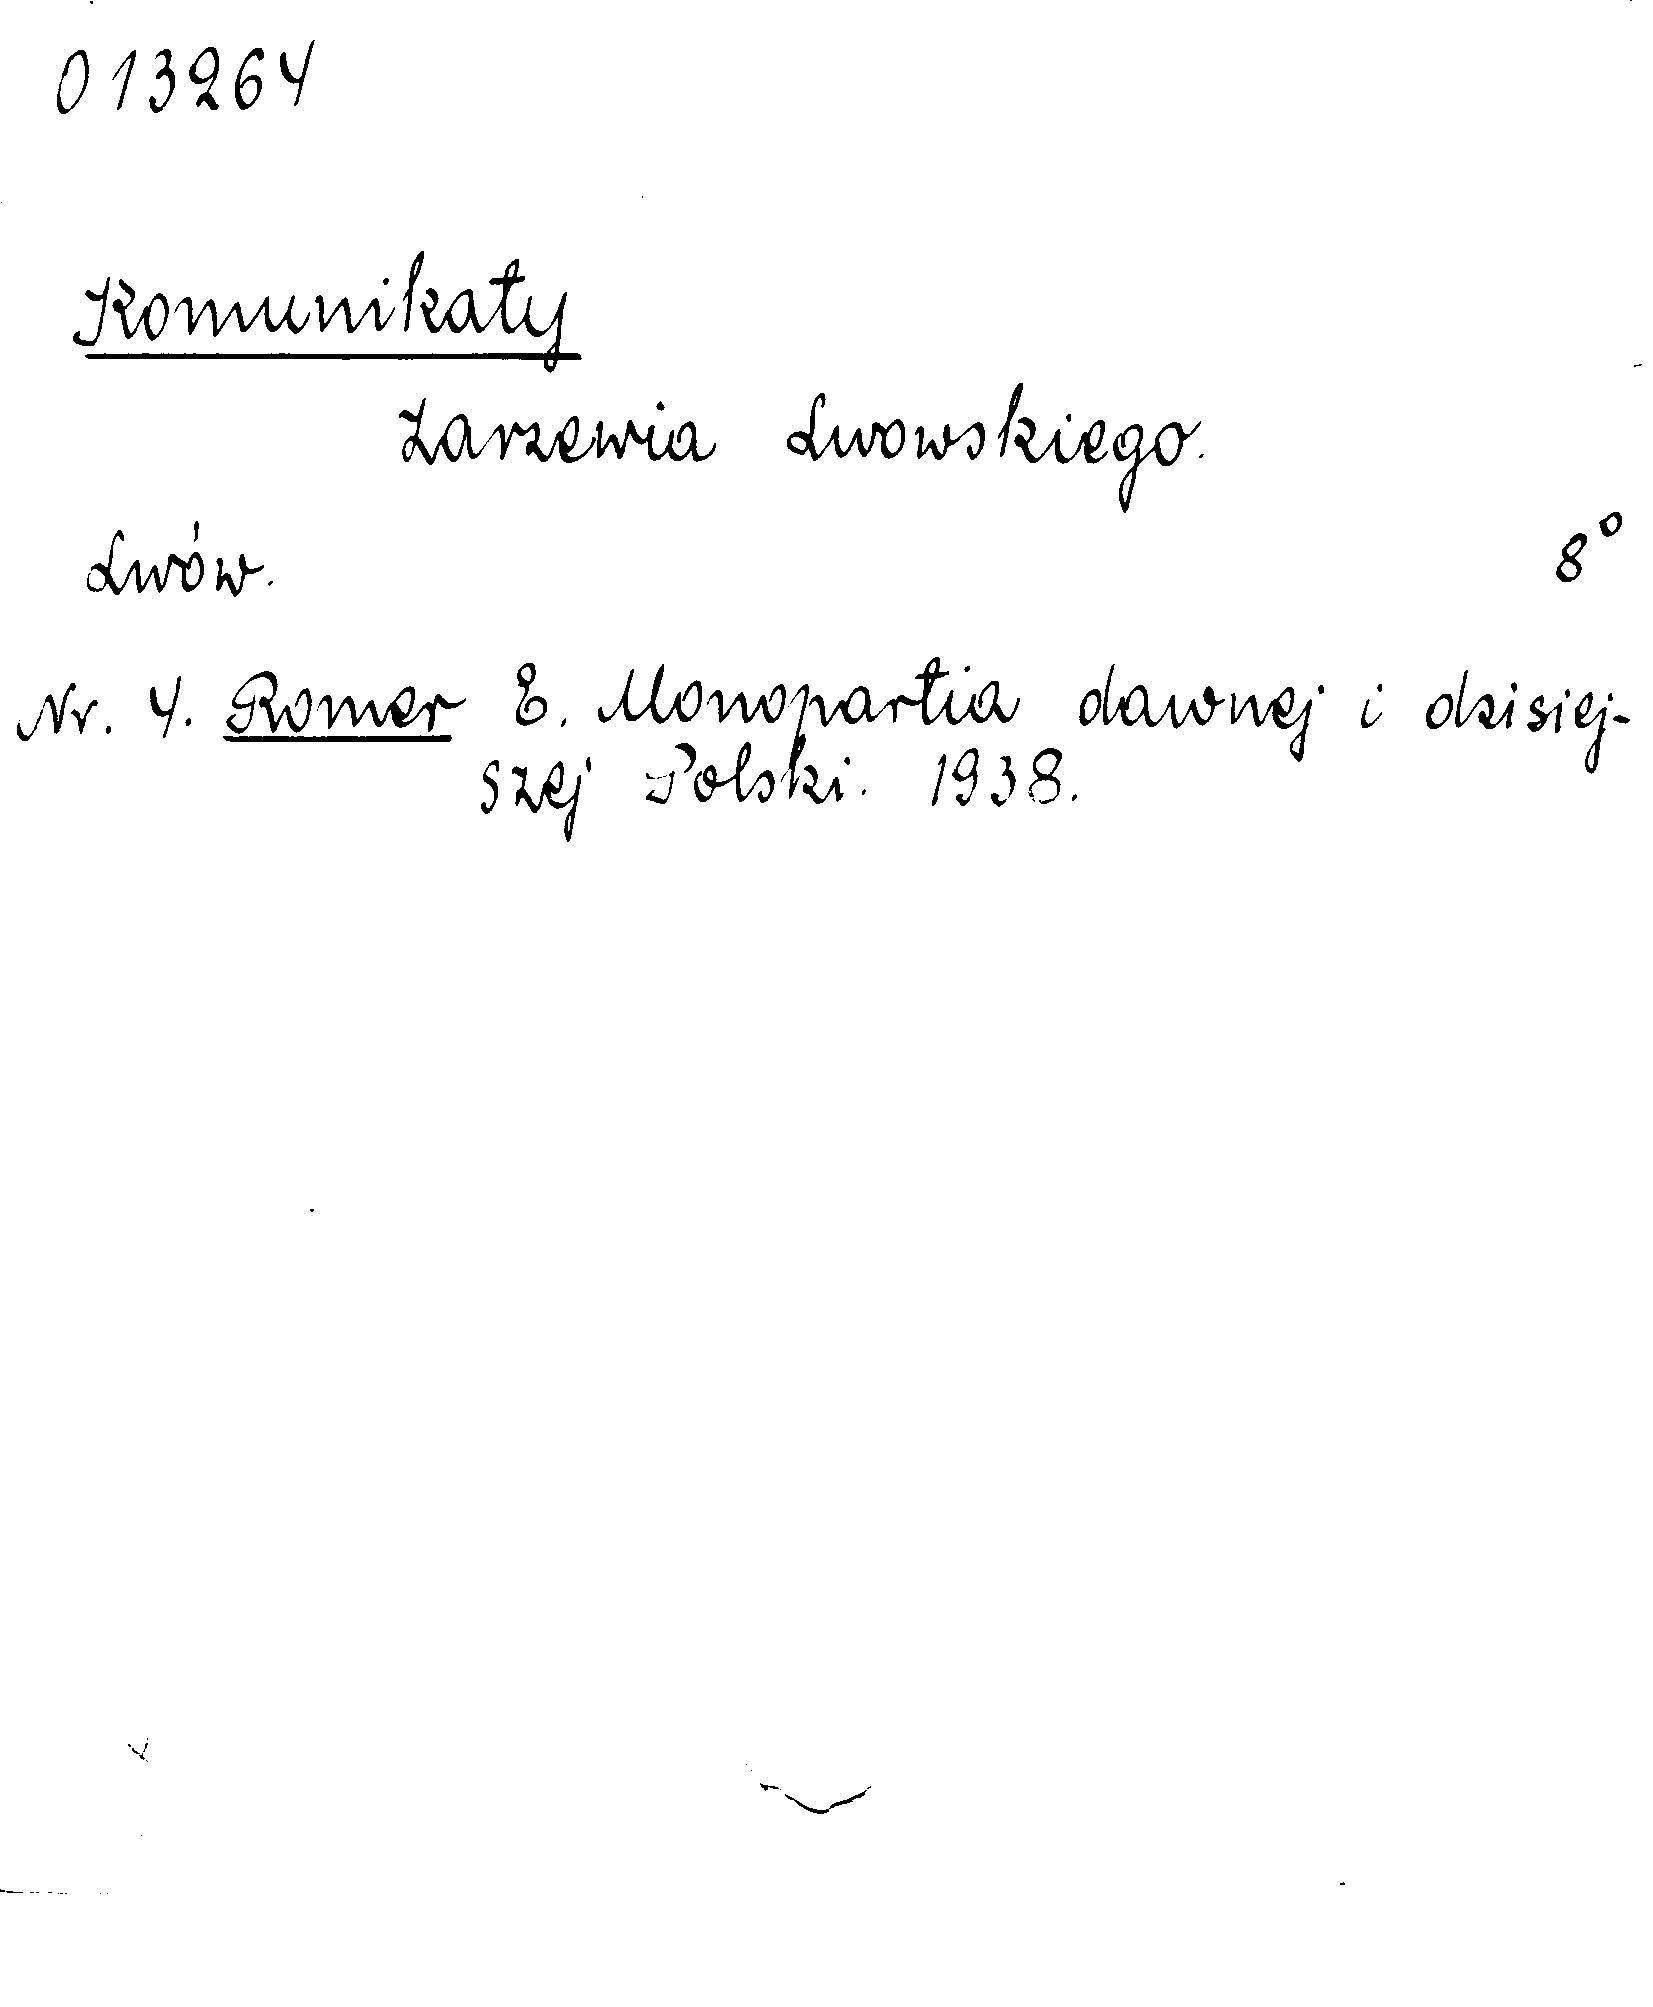 013264
Komunikaty
Zarzewia Lwowskiego.
Lwów. 8°
Nr. 4. Romer E. Monopartia dawnej i dzisiej-
szej Polski. 1938.